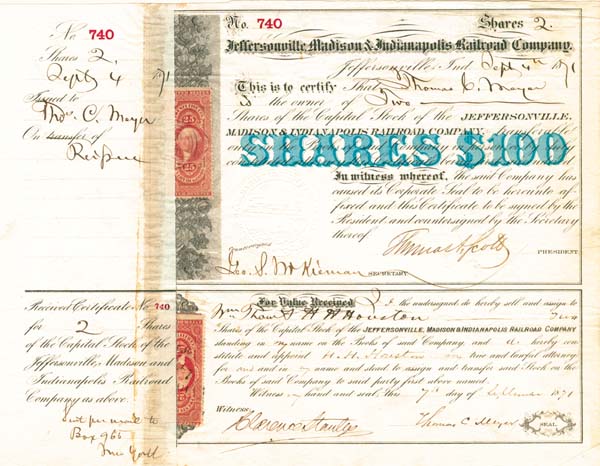 No. 740
Shares 2,
Sept 4 1871
Issued to
Thos. C. Meyer
On transfer of
No. 740 Shares 2.
Jeffersonville Madison & Indianapolis Railroad Company.
Jeffersonville, Ind Sept 4th 1871
This is to certify That Thomas C. Meyer
is the owner of Two
Shares of the Capital Stock of the JEFFERSONVILLE,
MADISON & INDIANAPOLIS RAILROAD COMPANY, transferable
SHARES $100
In witness whereof, the said Company has
caused its Corporate Seal to be hereunto af-
fixed and this Certificate to be signed by the
President and countersigned by the Secretary
thereof
Thomas A. Scott
PRESIDENT
Geo. S. McKiernan
SECRETARY
25
Received Certificate No 740
for 2 Shares
of the Capital Stock of the
Jeffersonville, Madison and
Indianapolis Railroad
Company as above.
Sent per mail to
Box 966
New York
For Value Received I the undersigned do hereby sell and assign to
H H Houston Two
Shares of the Capital Stock of the JEFFERSONVILLE, MADISON & INDIANAPOLIS RAILROAD COMPANY
standing in my name on the Books of said Company and do hereby con
stitute and appoint H. H. Houston my true and lawful attorney
for me and in my name and stead to assign and transfer said Stock on the
Books of said Company to said party first above named.
Witness my hand and seal, this 7th day of September 1871
Witness.
Thomas C Meyer
SEAL